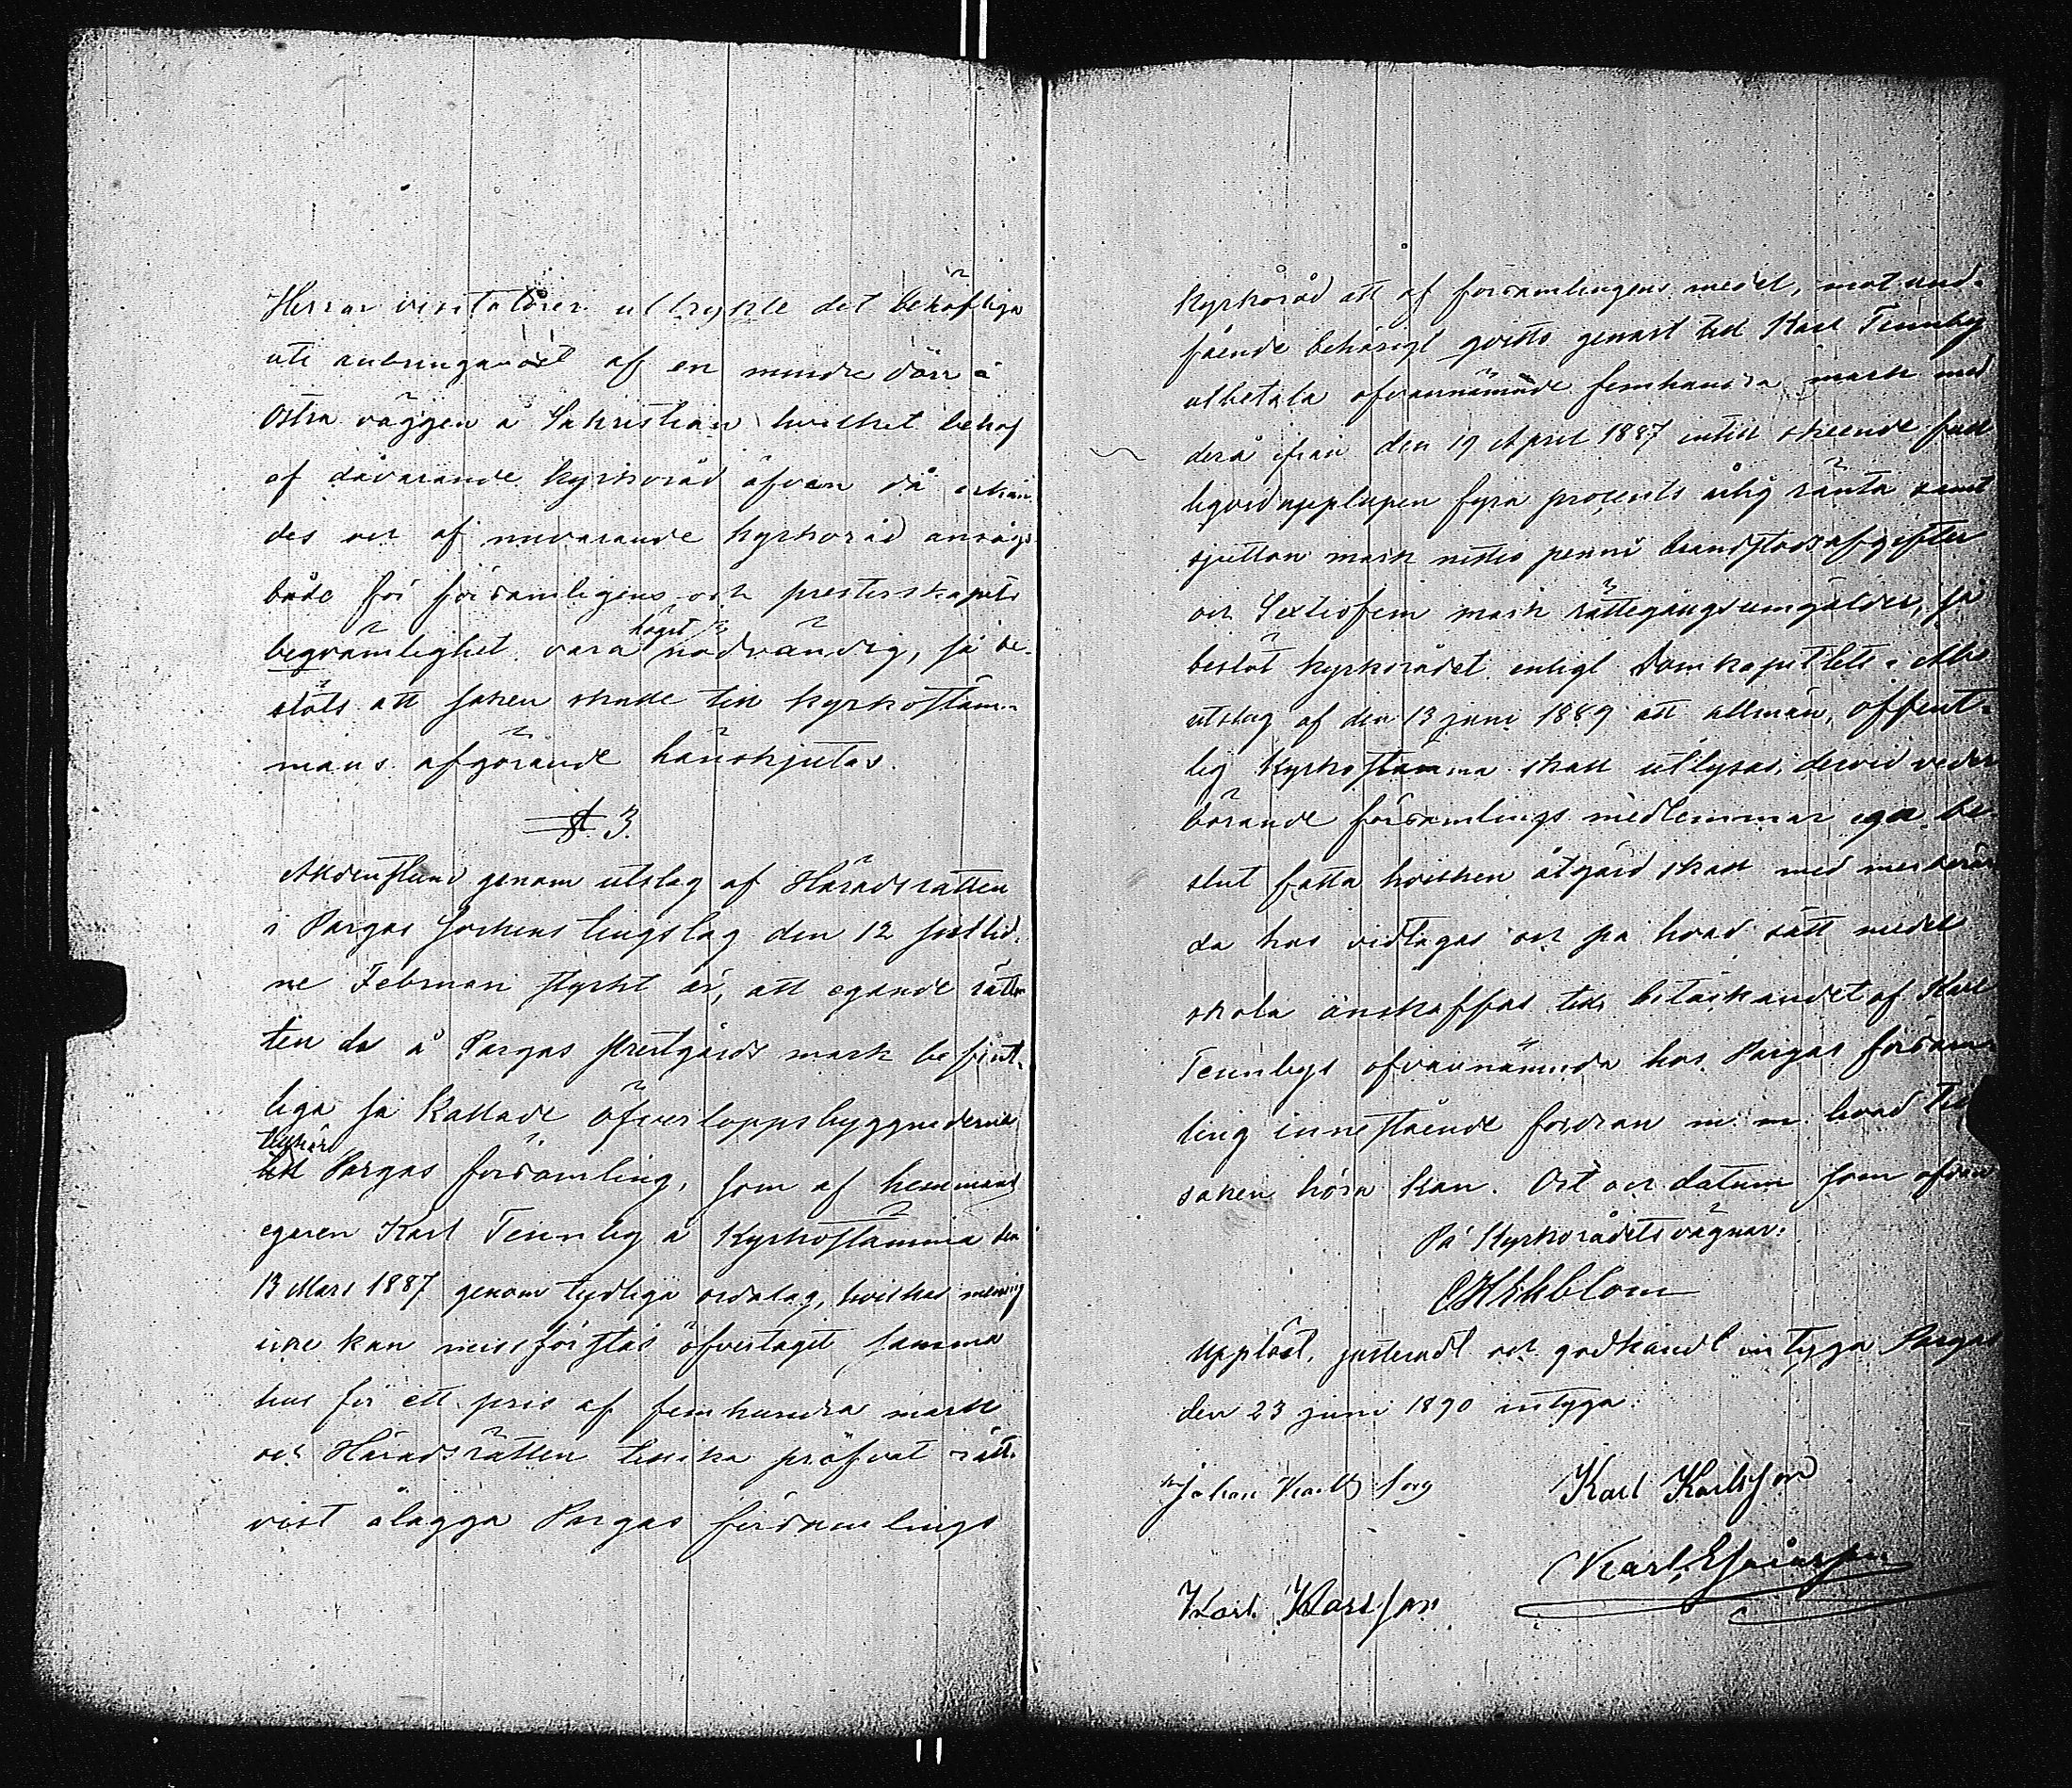 Herrar visitatörer uttrykte det behöfliga
uti anbringandet af en mindre dörr å
Östra väggen å Sakristian hvilket behof
af dåvarande kyrkoråd äfven då erkän-
des och af nuvarande kyrkoråd ansågs
både för församligens och presterskapets
beqvämlighet vara högst nödvändig, så be-
slöts att saken skulle till kyrkostäm-
mans afgörande hänskjutas.
§ 3.
Alldenstund genom utslag af Häradsrätten
i Pargas Sockens tingslag den 12 sistlid-
ne Februari styrkt är, att egande rätten
till de å Pargas prestgårds mark befint-
liga så kallade öfverloppsbyggnaderna
tillhör
Pargas församling, som af hemmans
egaren Karl Tennby å Kyrkostämma den
13 Mars 1887 genom tydliga ordalag, hvilkas mening
icke kan missförstås öfvertaget samma
hus för ett pris af femhundra mark
och Häradsrätten tillika pröfvat rätt-
vist ålägga Pargas församlings
Kyrkoråd att af församlingens medel, mot und-
fående behörigt qvitto genast till Karl Tennby
utbetala ofvannämnde femhundra mark med
derå ifrån den 19 April 1887 intill skeende full
upplupen fyra procents årlig ränta samt
sjutton mark nittio penni brandstodsafgifter
och Sextiofem mark rättegångsomgälder, så
beslöt kyrkorådet enligt Domkapitlets i Åbo
utslag af den 13 juni 1889 att allmän, offent-
lig Kyrkostämma skall utlysas, dervid veder
börande församlings medlemmar ega be-
slut fatta hvilken åtgärd skall med
da hus vidtagas och på hvad sätt medel
skola anskaffas till betäckandet af Karl
Tennbys ofvannämnda hos Pargas försam-
ling innestående fordran m. m. hvad till
saken höra kan. Ort och datum som ofvan
På Kyrkorådets vägnar:
Uppläst, justeradt och godkändt intyga Pargas
den 23 juni 1890 intyga:
Johan Karlsson Karl Karlsson
Karl Karlsson Karl